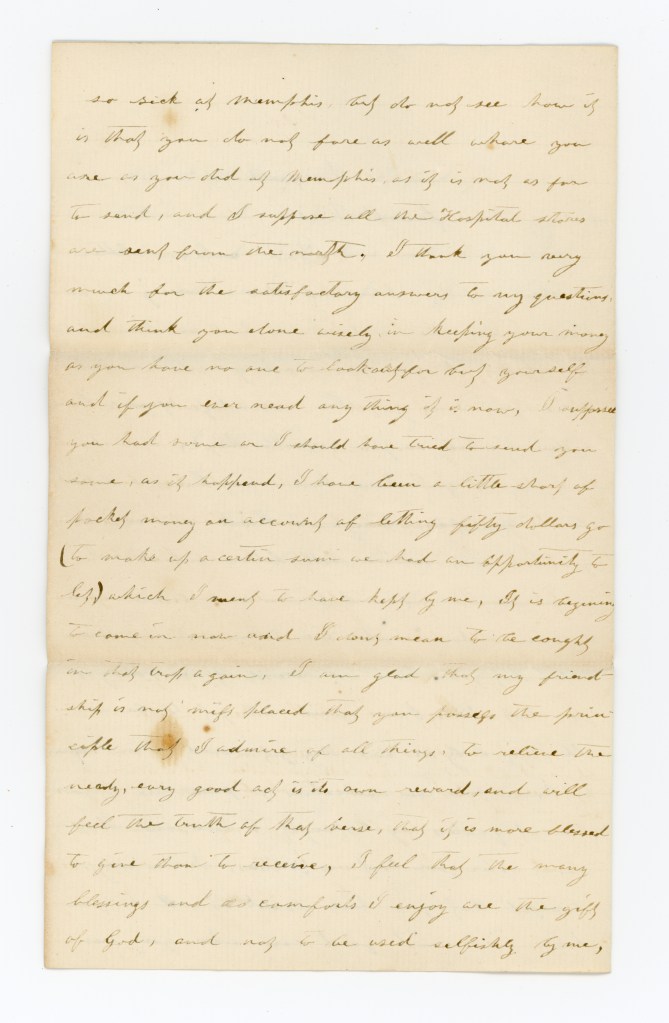 so sick at Memphis, but do not see how it
is that you do not fare as well where you
are as you did at Memphis, as it is not as far
to send, and I suppose all the Hospital stores
are sent from the north. I thank you very
much for the satisfactory answers to my questions,
and think you done wisely in keeping your money
as you have no one to look out for but yourself
and if you ever nead any thing it is now, I suppose
you had some or I should have tried to send you
some, as it happend, I have been a little short of
pocket money on account of letting fifty dollars go
(to make up a certin sum we had an opportunity to
let) which I ment to have kept by me, It is begining
to come in now and I dont mean to be cought
in that trap again, I am glad that my friend
ship is not miss placed that you possess the prin
ciple that I admire of all things, to relieve the
neady, evry good act is its own reward, and will
feel the truth of that verse, that it is more blessed
to give than to receive, I feel that the many
blessings and comforts I enjoy are the gift
of God, and not to be used selfishly by me,